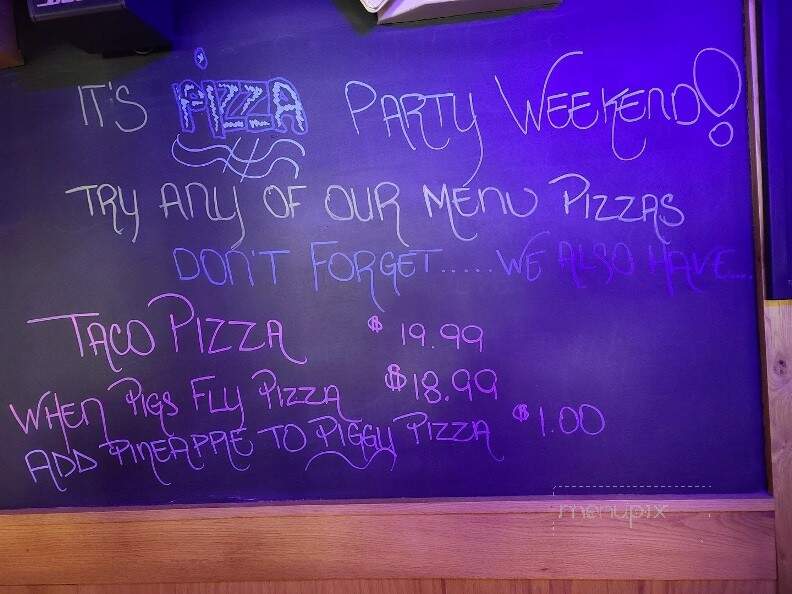 IT'S PIZZA PARTY WEEKEND!
TRY ANY OF OUR MENU PIZZAS
DON'T FORGET..... WE ALSO HAVE...
TACO PIZZA $19.99
WHEN PIGS FLY PIZZA $18.99
ADD PINEAPPLE TO PIGGY PIZZA $1.00
menupix